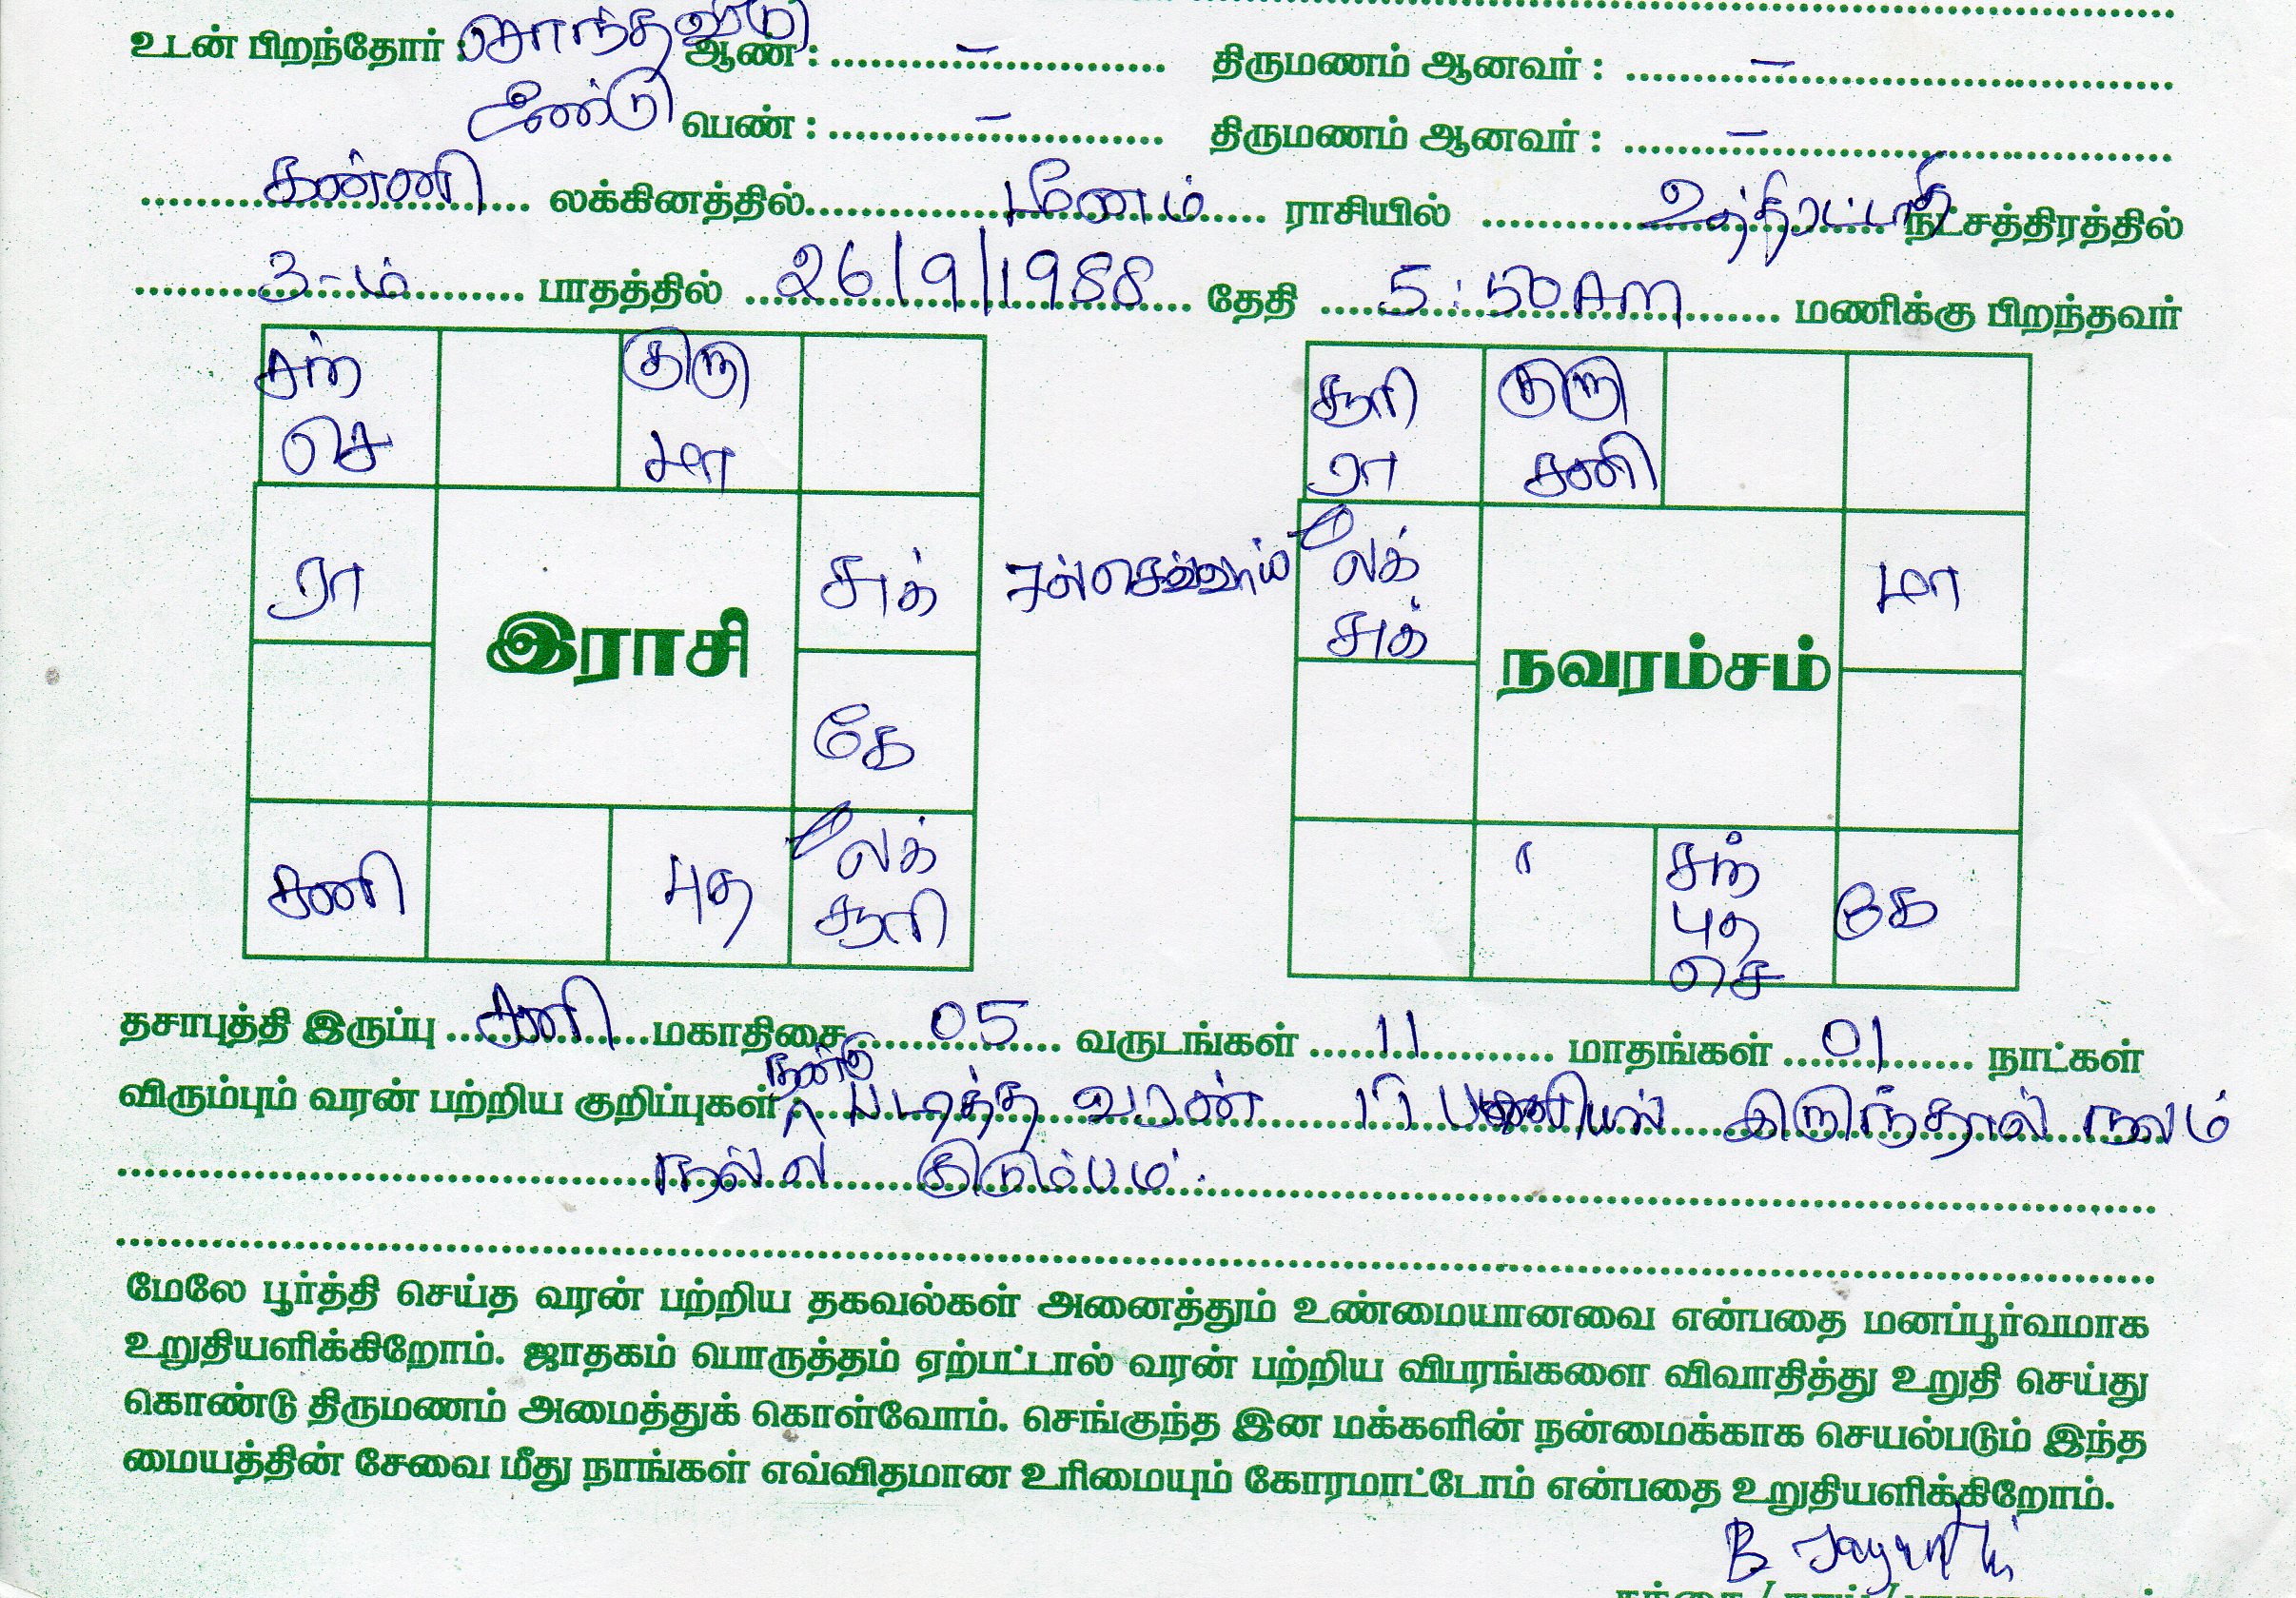 உடன் பிறந்தோர் : சொந்தவீடு ஆண் : – திருமணம் ஆனவர் : –
உண்டு பெண் : – திருமணம் ஆனவர் : –
கன்னி லக்கினத்தில் மீனம் ராசியில் உத்திரட்டாதி நட்சத்திரத்தில்
3-ம் பாதத்தில் 26/9/1988 தேதி 5:50 Am மணிக்கு பிறந்தவர்
சந் செ
குரு மா
ரா
சுக்
இராசி
கே
சனி
புத
லக் சூரி
7ல் செவ்வாய்
சூரி ரா
குரு சனி
லக் சுக்
மா
நவரம்சம்
சந் புத செ
கே
தசாபுத்தி இருப்பு சனி மகாதிசை 05 வருடங்கள் 11 மாதங்கள் 01 நாட்கள்
விரும்பும் வரன் பற்றிய குறிப்புகள் : நன்கு படித்த வரன் IT பணியில் இருந்தால் நலம்
நல்ல குடும்பம்.
மேலே பூர்த்தி செய்த வரன் பற்றிய தகவல்கள் அனைத்தும் உண்மையானவை என்பதை மனப்பூர்வமாக
உறுதியளிக்கிறோம். ஜாதகம் பொருத்தம் ஏற்பட்டால் வரன் பற்றிய விபரங்களை விவாதித்து உறுதி செய்து
கொண்டு திருமணம் அமைத்துக் கொள்வோம். செங்குந்த இன மக்களின் நன்மைக்காக செயல்படும் இந்த
மையத்தின் சேவை மீது நாங்கள் எவ்விதமான உரிமையும் கோரமாட்டோம் என்பதை உறுதியளிக்கிறோம்.
B. Jayanthi